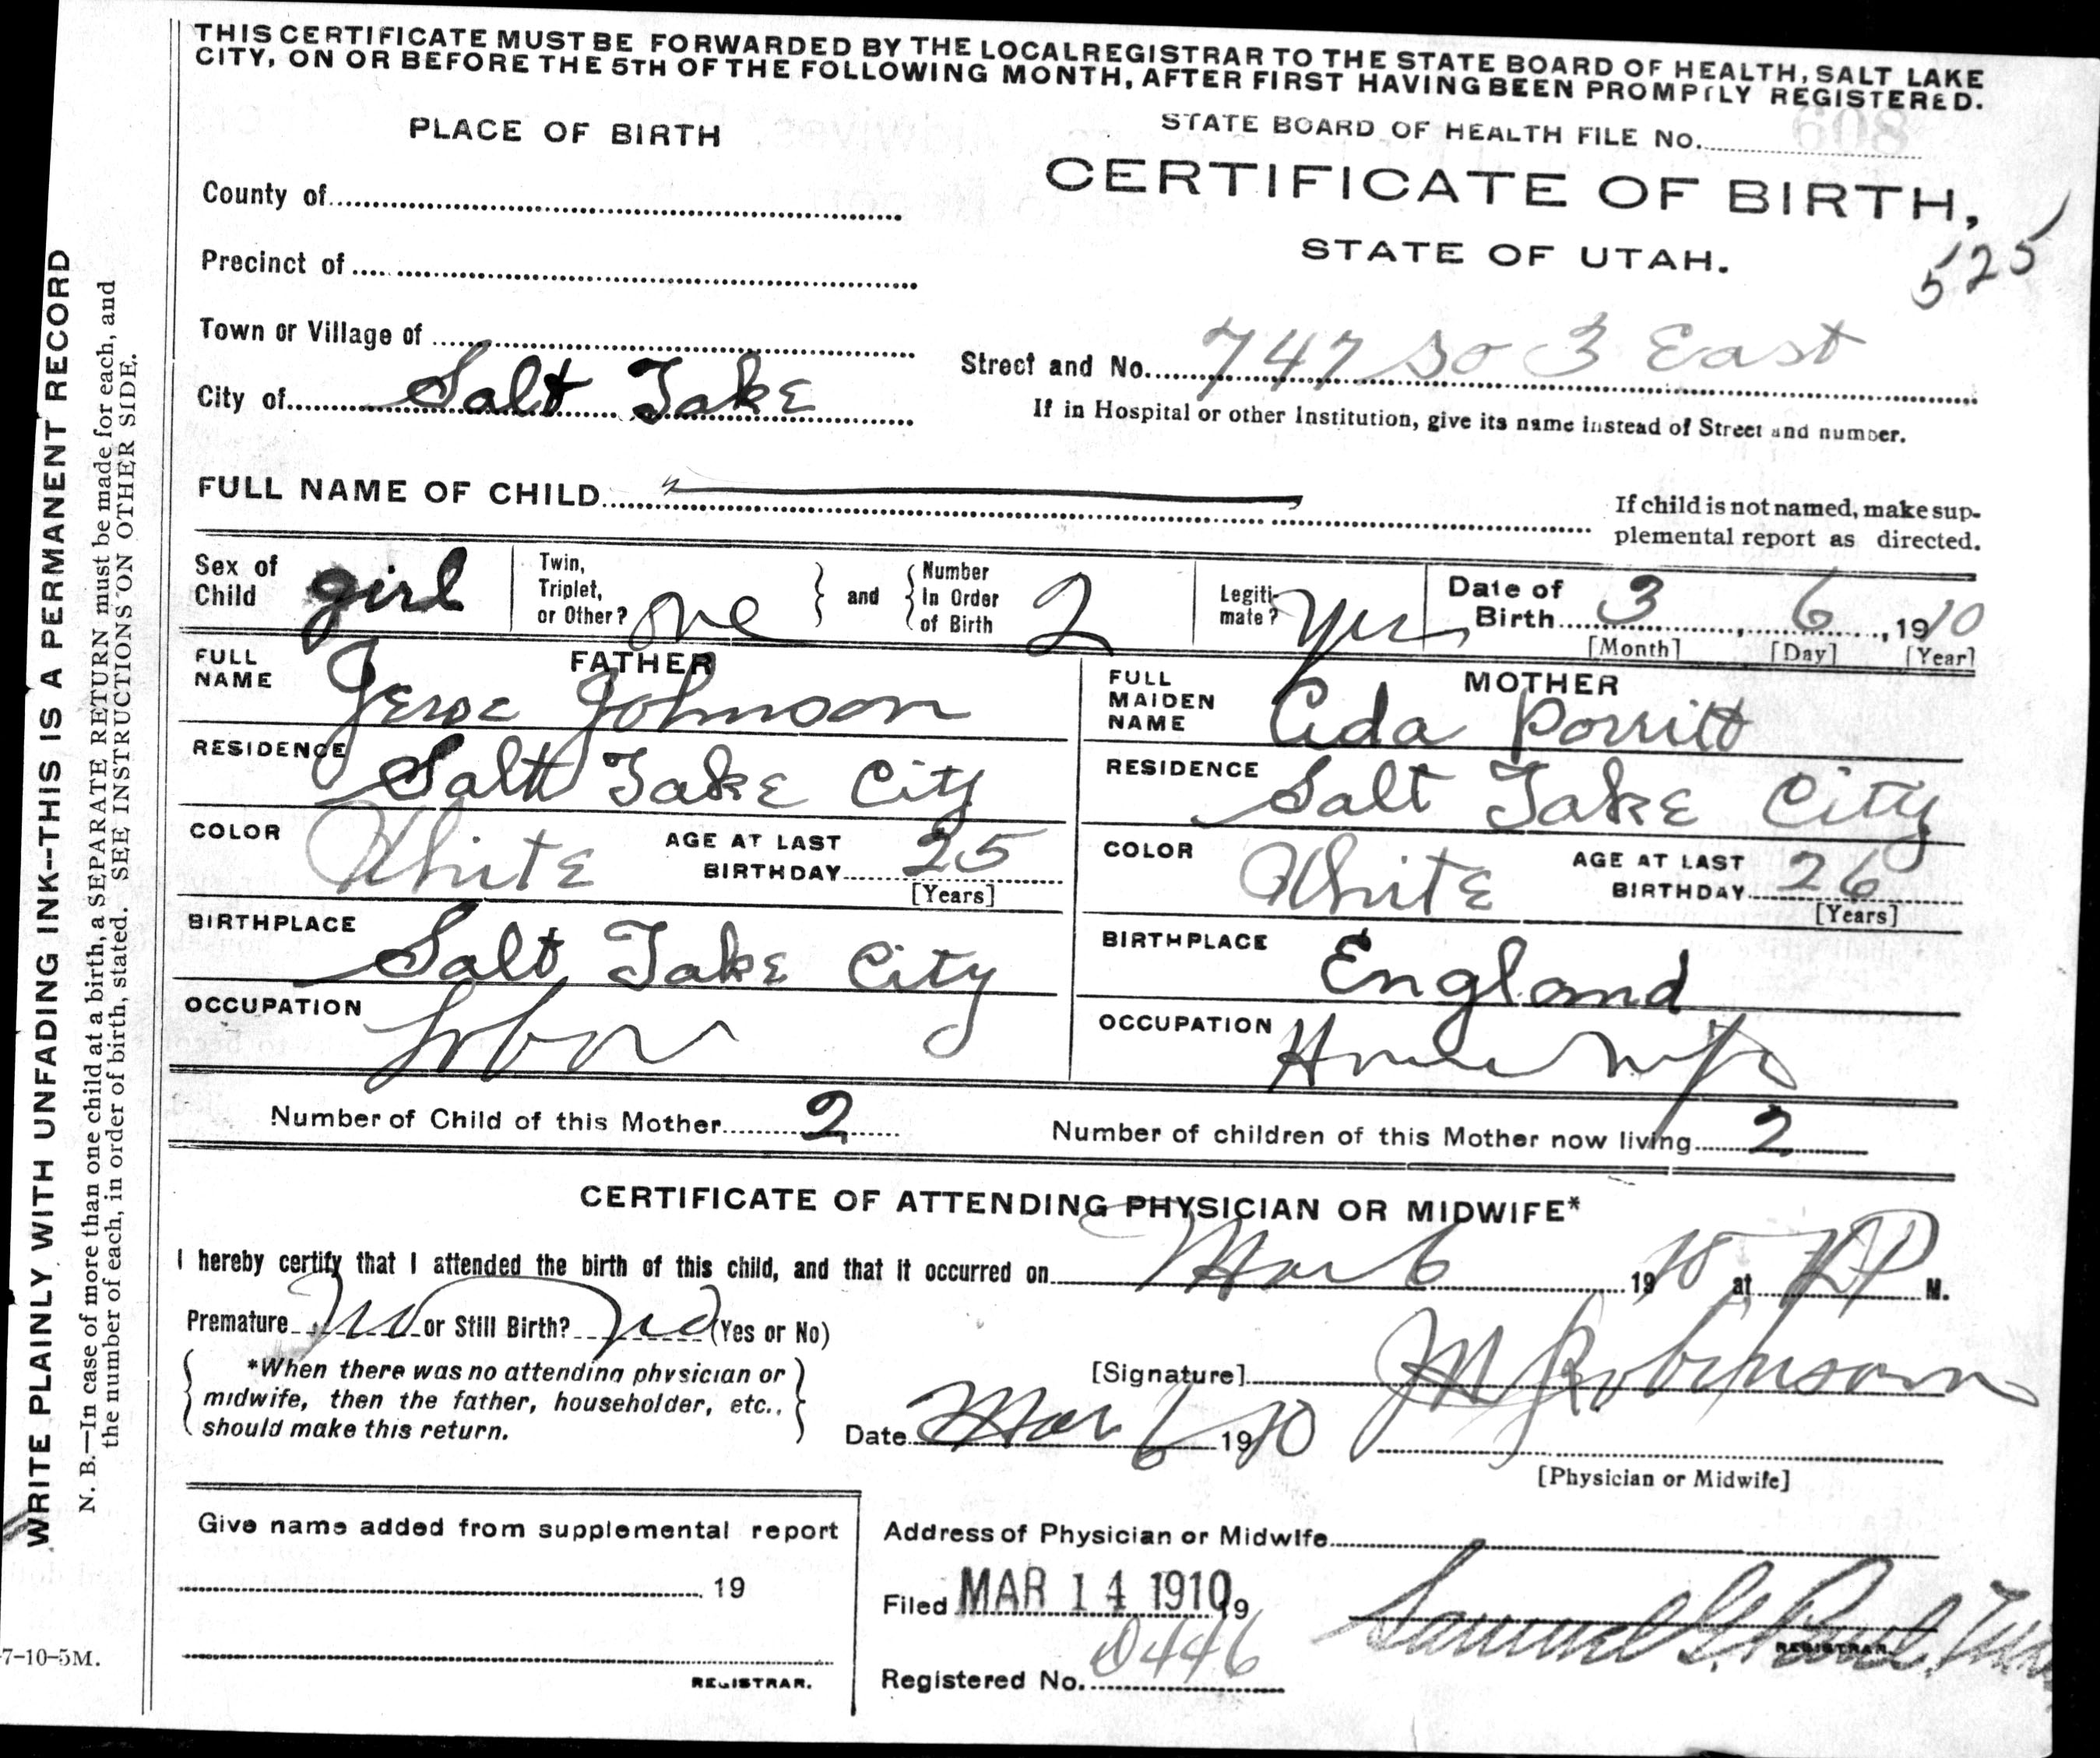 THIS CERTIFICATE MUST BE FORWARDED BY THE LOCAL REGISTRAR TO THE STATE BOARD OF HEALTH, SALT LAKE
CITY, ON OR BEFORE THE 5TH OF THE FOLLOWING MONTH, AFTER FIRST HAVING BEEN PROMPTLY REGISTERED.
PLACE OF BIRTH
STATE BOARD OF HEALTH FILE No.
CERTIFICATE OF BIRTH,
STATE OF UTAH.
525
County of
Precinct of
Town or Village of
City of Salt Lake
Street and No. 747 So 3 East
If in Hospital or other Institution, give its name instead of Street and number.
FULL NAME OF CHILD
If child is not named, make sup-
plemental report as directed.
Sex of Child girl
Twin, Triplet, or Other? one
and
Number In Order of Birth 2
Legiti-mate? Yes
Date of Birth 3, 6, 1910
[Month] [Day] [Year]
FATHER
FULL NAME Jesse Johnson
RESIDENCE Salt Lake City
COLOR White
AGE AT LAST BIRTHDAY 25
[Years]
BIRTHPLACE Salt Lake City
OCCUPATION
MOTHER
FULL MAIDEN NAME Ada Porritt
RESIDENCE Salt Lake City
COLOR White
AGE AT LAST BIRTHDAY 26
[Years]
BIRTHPLACE England
OCCUPATION House wife
Number of Child of this Mother 2
Number of children of this Mother now living 2
CERTIFICATE OF ATTENDING PHYSICIAN OR MIDWIFE*
I hereby certify that I attended the birth of this child, and that it occurred on Mar 6 1910 at P M.
Premature No or Still Birth? No (Yes or No)
*When there was no attending physician or
midwife, then the father, householder, etc.,
should make this return.
[Signature] Robinson
Date Mar 6 1910
[Physician or Midwife]
Give name added from supplemental report
19
REGISTRAR.
Address of Physician or Midwife
Filed MAR 14 1910 19
Samuel G. Paul
REGISTRAR
Registered No. 0446
WRITE PLAINLY WITH UNFADING INK--THIS IS A PERMANENT RECORD
N. B.—In case of more than one child at a birth, a SEPARATE RETURN must be made for each, and
the number of each, in order of birth, stated. SEE INSTRUCTIONS ON OTHER SIDE.
7-10-5M.